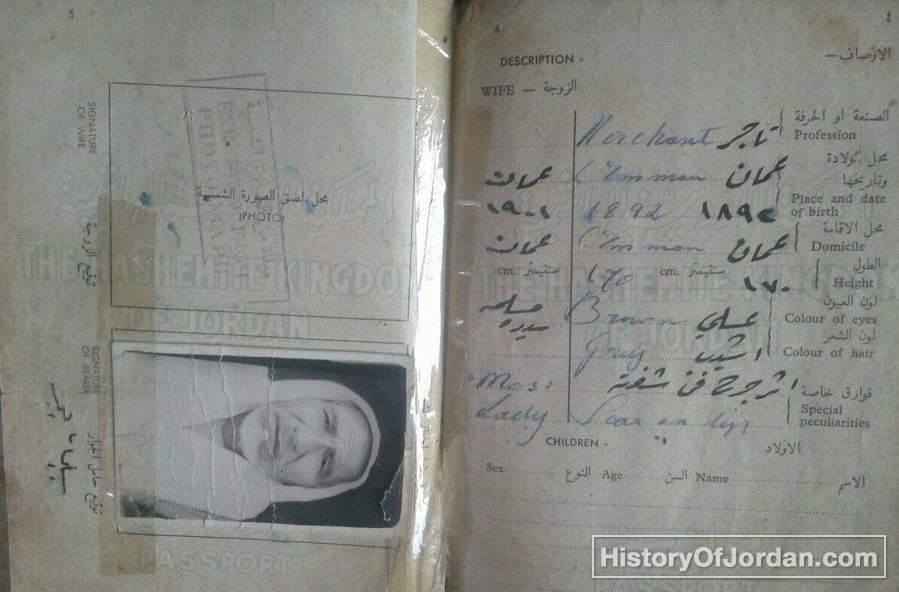 5
SIGNATURE
OF WIFE
توقيع الزوجة
محل لصق الصورة الشمسية
(PHOTO)
THE HASHEMITE KINGDOM
OF JORDAN
SIGNATURE
OF BEARER
توقيع حامل الجواز
PASSPORT
4 ٤
DESCRIPTION - الاوصاف -
WIFE — الزوجة
الصنعة او الحرفة
Merchant تاجر Profession
محل الولادة
وتاريخها
عمان Amman عمان Place and date
١٩٠١ 1892 ١٨٩٢ of birth
محل الاقامة
عمان Amman عمان Domicile
الطول
cm. سنتيمتر 170 cm. سنتيمتر ١٧٠ Height
لون العيون
Brown عسلي Colour of eyes
لون الشعر
Gray اشيب Colour of hair
فوارق خاصة
Mos: اثر جرح في شفته Special
Lady Scar on lip peculiarities
CHILDREN - الاولاد
Sex النوع Age السن Name الاسم
THE HASHEMITE KINGDOM
OF JORDAN
PASSPORT
HistoryOfJordan.com